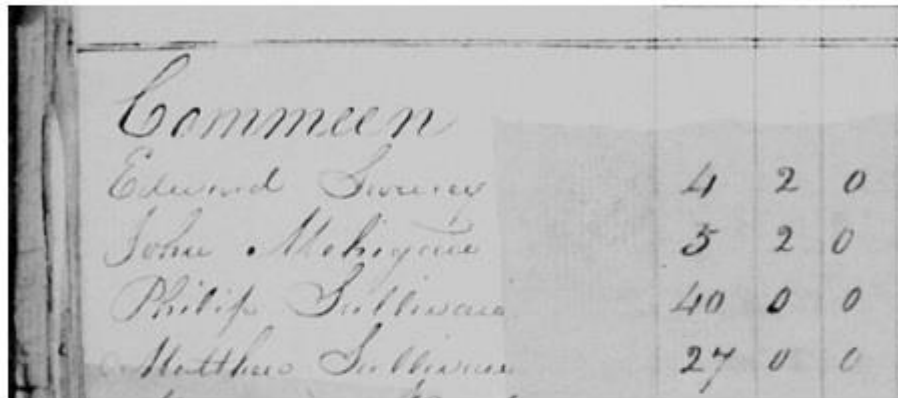 Commeen
Edward Sweeney 4 2 0
John Mehigane 5 2 0
Philip Sullivan 40 0 0
Matthew Sullivan 27 0 0